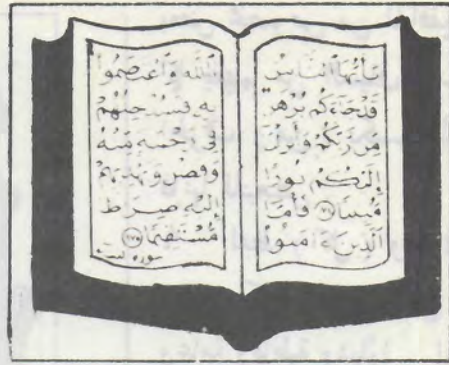 يَا أَيُّهَا النَّاسُ
قَدْ جَاءَكُم بُرْهَٰنٌ
مِّن رَّبِّكُمْ وَأَنزَلْنَا
إِلَيْكُمْ نُورًا
مُّبِينًا ۝١٧٤ فَأَمَّا
الَّذِينَ ءَامَنُوا
بِٱللَّهِ وَٱعْتَصَمُوا
بِهِ فَسَيُدْخِلُهُمْ
فِي رَحْمَةٍ مِّنْهُ
وَفَضْلٍ وَيَهْدِيهِمْ
إِلَيْهِ صِرَاطًا
مُّسْتَقِيمًا ۝١٧٥
سورة النساء